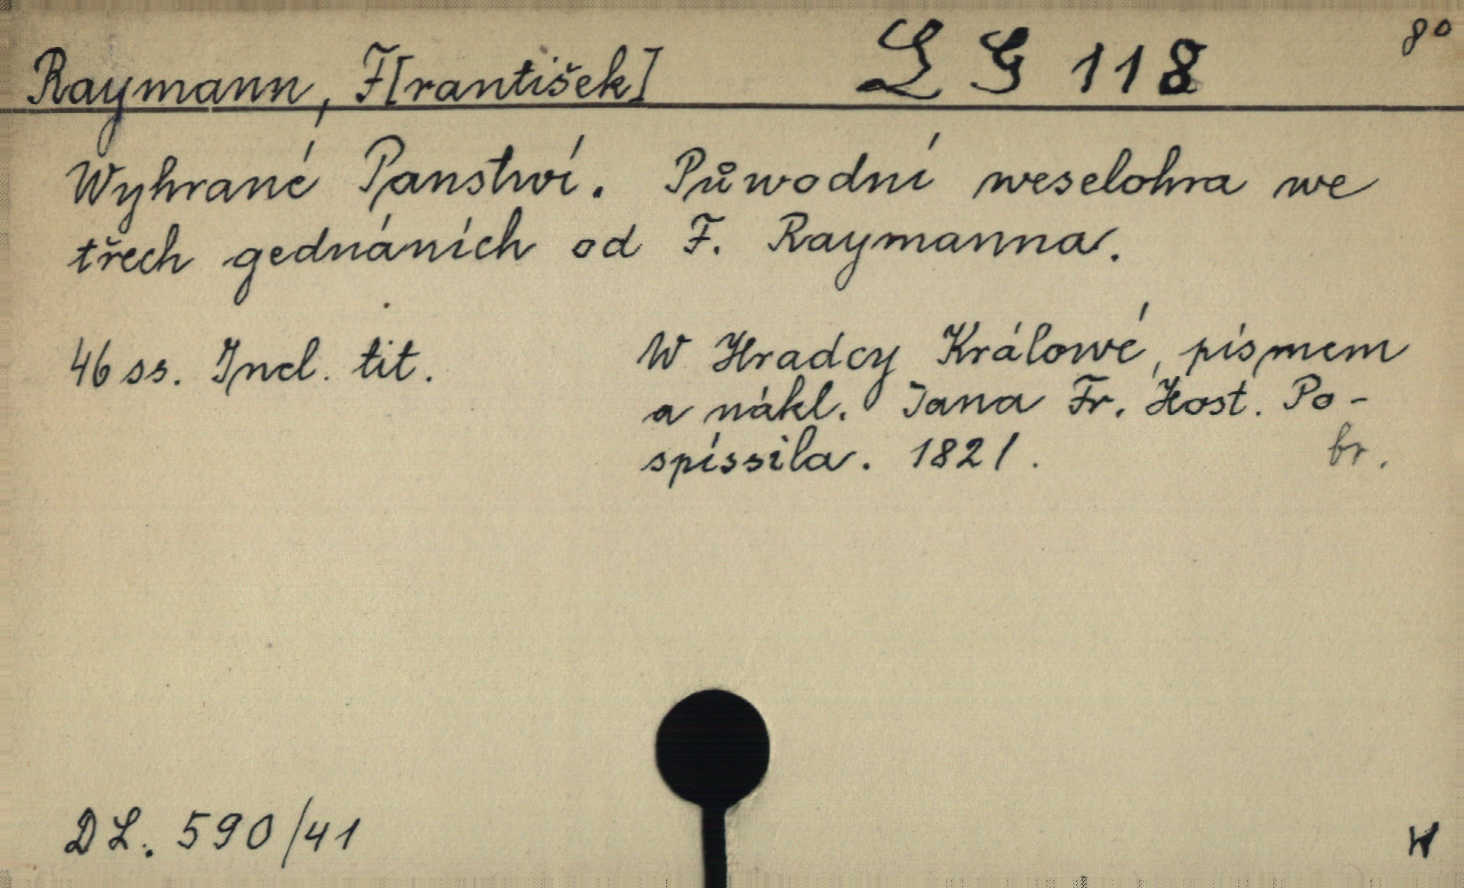 Raymann, F[rantišek] LG 118 8°
Wyhrané Panstwí. Půwodní weselohra we
třech gednáních od F. Raymanna.
46 ss. Incl. tit.
W Hradcy Králowé, písmem
a nákl. Jana Fr. Host. Po-
spíssila. 1821.
br.
DL. 590/41
W